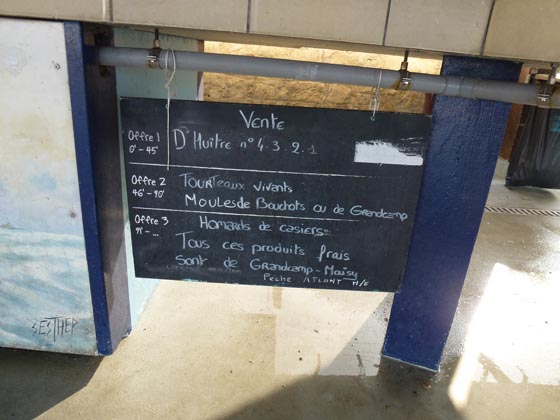 Vente
Offre 1
0' - 45'
D'Huître n° 4.3.2.1
Offre 2
46' - 90'
Tourteaux vivants
Moules de Bouchots ou de Grandcamp
Offre 3
91' - ...
Homards de casiers
Tous ces produits frais
sont de Grandcamp-Maisy
Peche ATLANT N/E
SESTHER